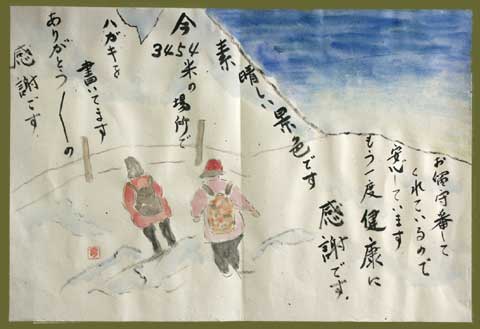 お留守番して
くれているので
安心しています
もう一度健康に
感謝です。
素晴しい景色です
今3454米の場所で
ハガキを
書いてます
ありがとう〱の
感謝です